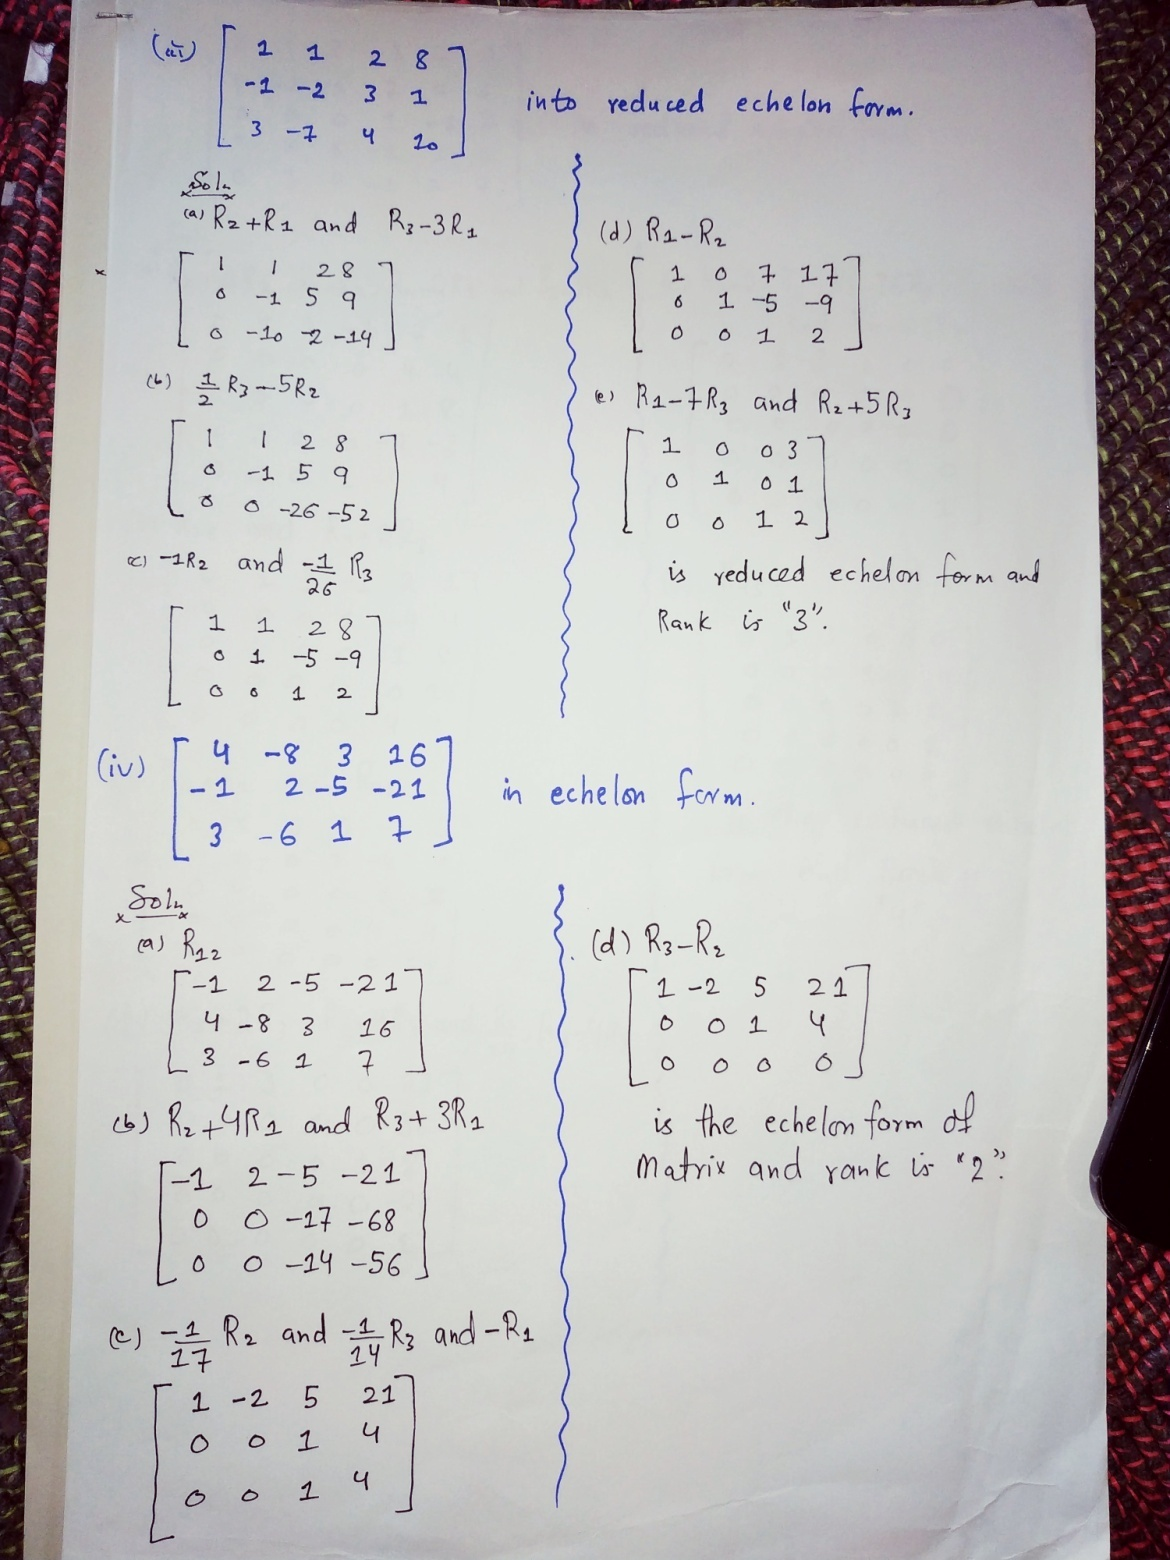 (iii) [ 1 1 2 8
-1 -2 3 1
3 -7 4 10 ] into reduced echelon form.
Soln
(a) R2+R1 and R3-3R1
[ 1 1 2 8
0 -1 5 9
0 -10 -2 -14 ]
(b) 1/2 R3-5R2
[ 1 1 2 8
0 -1 5 9
0 0 -26 -52 ]
(c) -1R2 and -1/26 R3
[ 1 1 2 8
0 1 -5 -9
0 0 1 2 ]
(d) R1-R2
[ 1 0 7 17
0 1 -5 -9
0 0 1 2 ]
(e) R1-7R3 and R2+5R3
[ 1 0 0 3
0 1 0 1
0 0 1 2 ]
is reduced echelon form and
Rank is "3".
(iv) [ 4 -8 3 16
-1 2 -5 -21
3 -6 1 7 ] in echelon form.
Soln
(a) R12
[ -1 2 -5 -21
4 -8 3 16
3 -6 1 7 ]
(b) R2+4R1 and R3+3R1
[ -1 2 -5 -21
0 0 -17 -68
0 0 -14 -56 ]
(c) -1/17 R2 and -1/14 R3 and -R1
[ 1 -2 5 21
0 0 1 4
0 0 1 4 ]
(d) R3-R2
[ 1 -2 5 21
0 0 1 4
0 0 0 0 ]
is the echelon form of
Matrix and rank is "2".